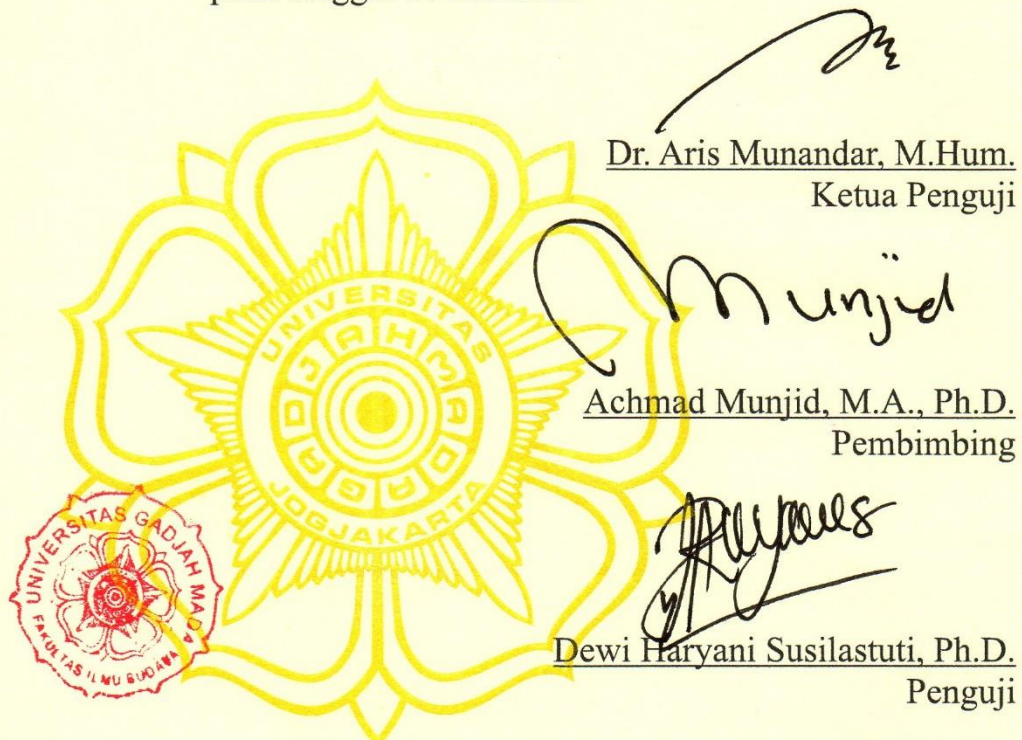 Dr. Aris Munandar, M.Hum.
Ketua Penguji
Munjid
Achmad Munjid, M.A., Ph.D.
Pembimbing
Dewi Haryani Susilastuti, Ph.D.
Penguji
UNIVERSITAS
GADJAH MADA
JOGJAKARTA
UNIVERSITAS GADJAH MADA
FAKULTAS ILMU BUDAYA